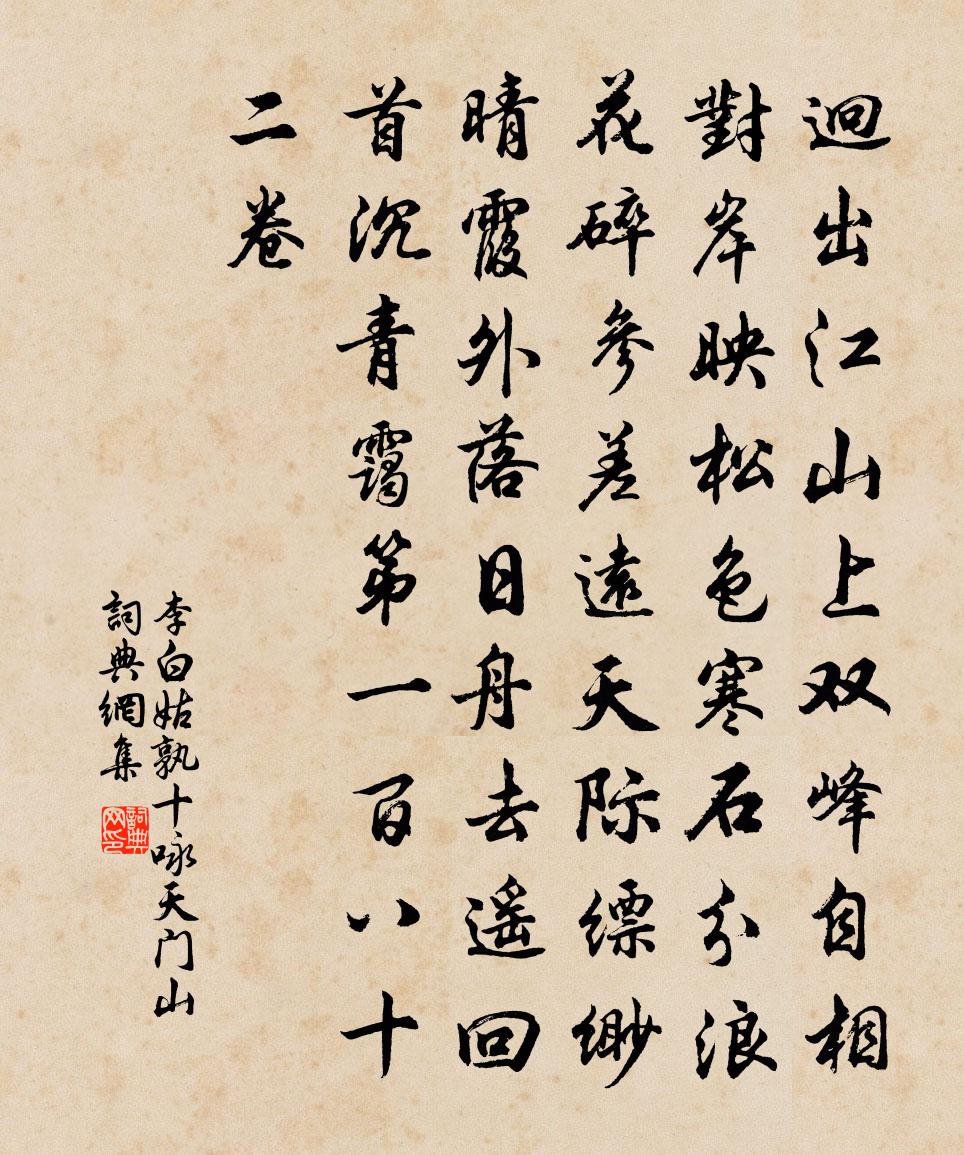 迥出江山上双峰自相
對岸映松色寒石分浪
花碎參差遠天际缥缈
晴霞外落日舟去遥回
首沉青靄第一百八十
二卷
李白姑孰十咏天门山
詞典網集
詞典网印